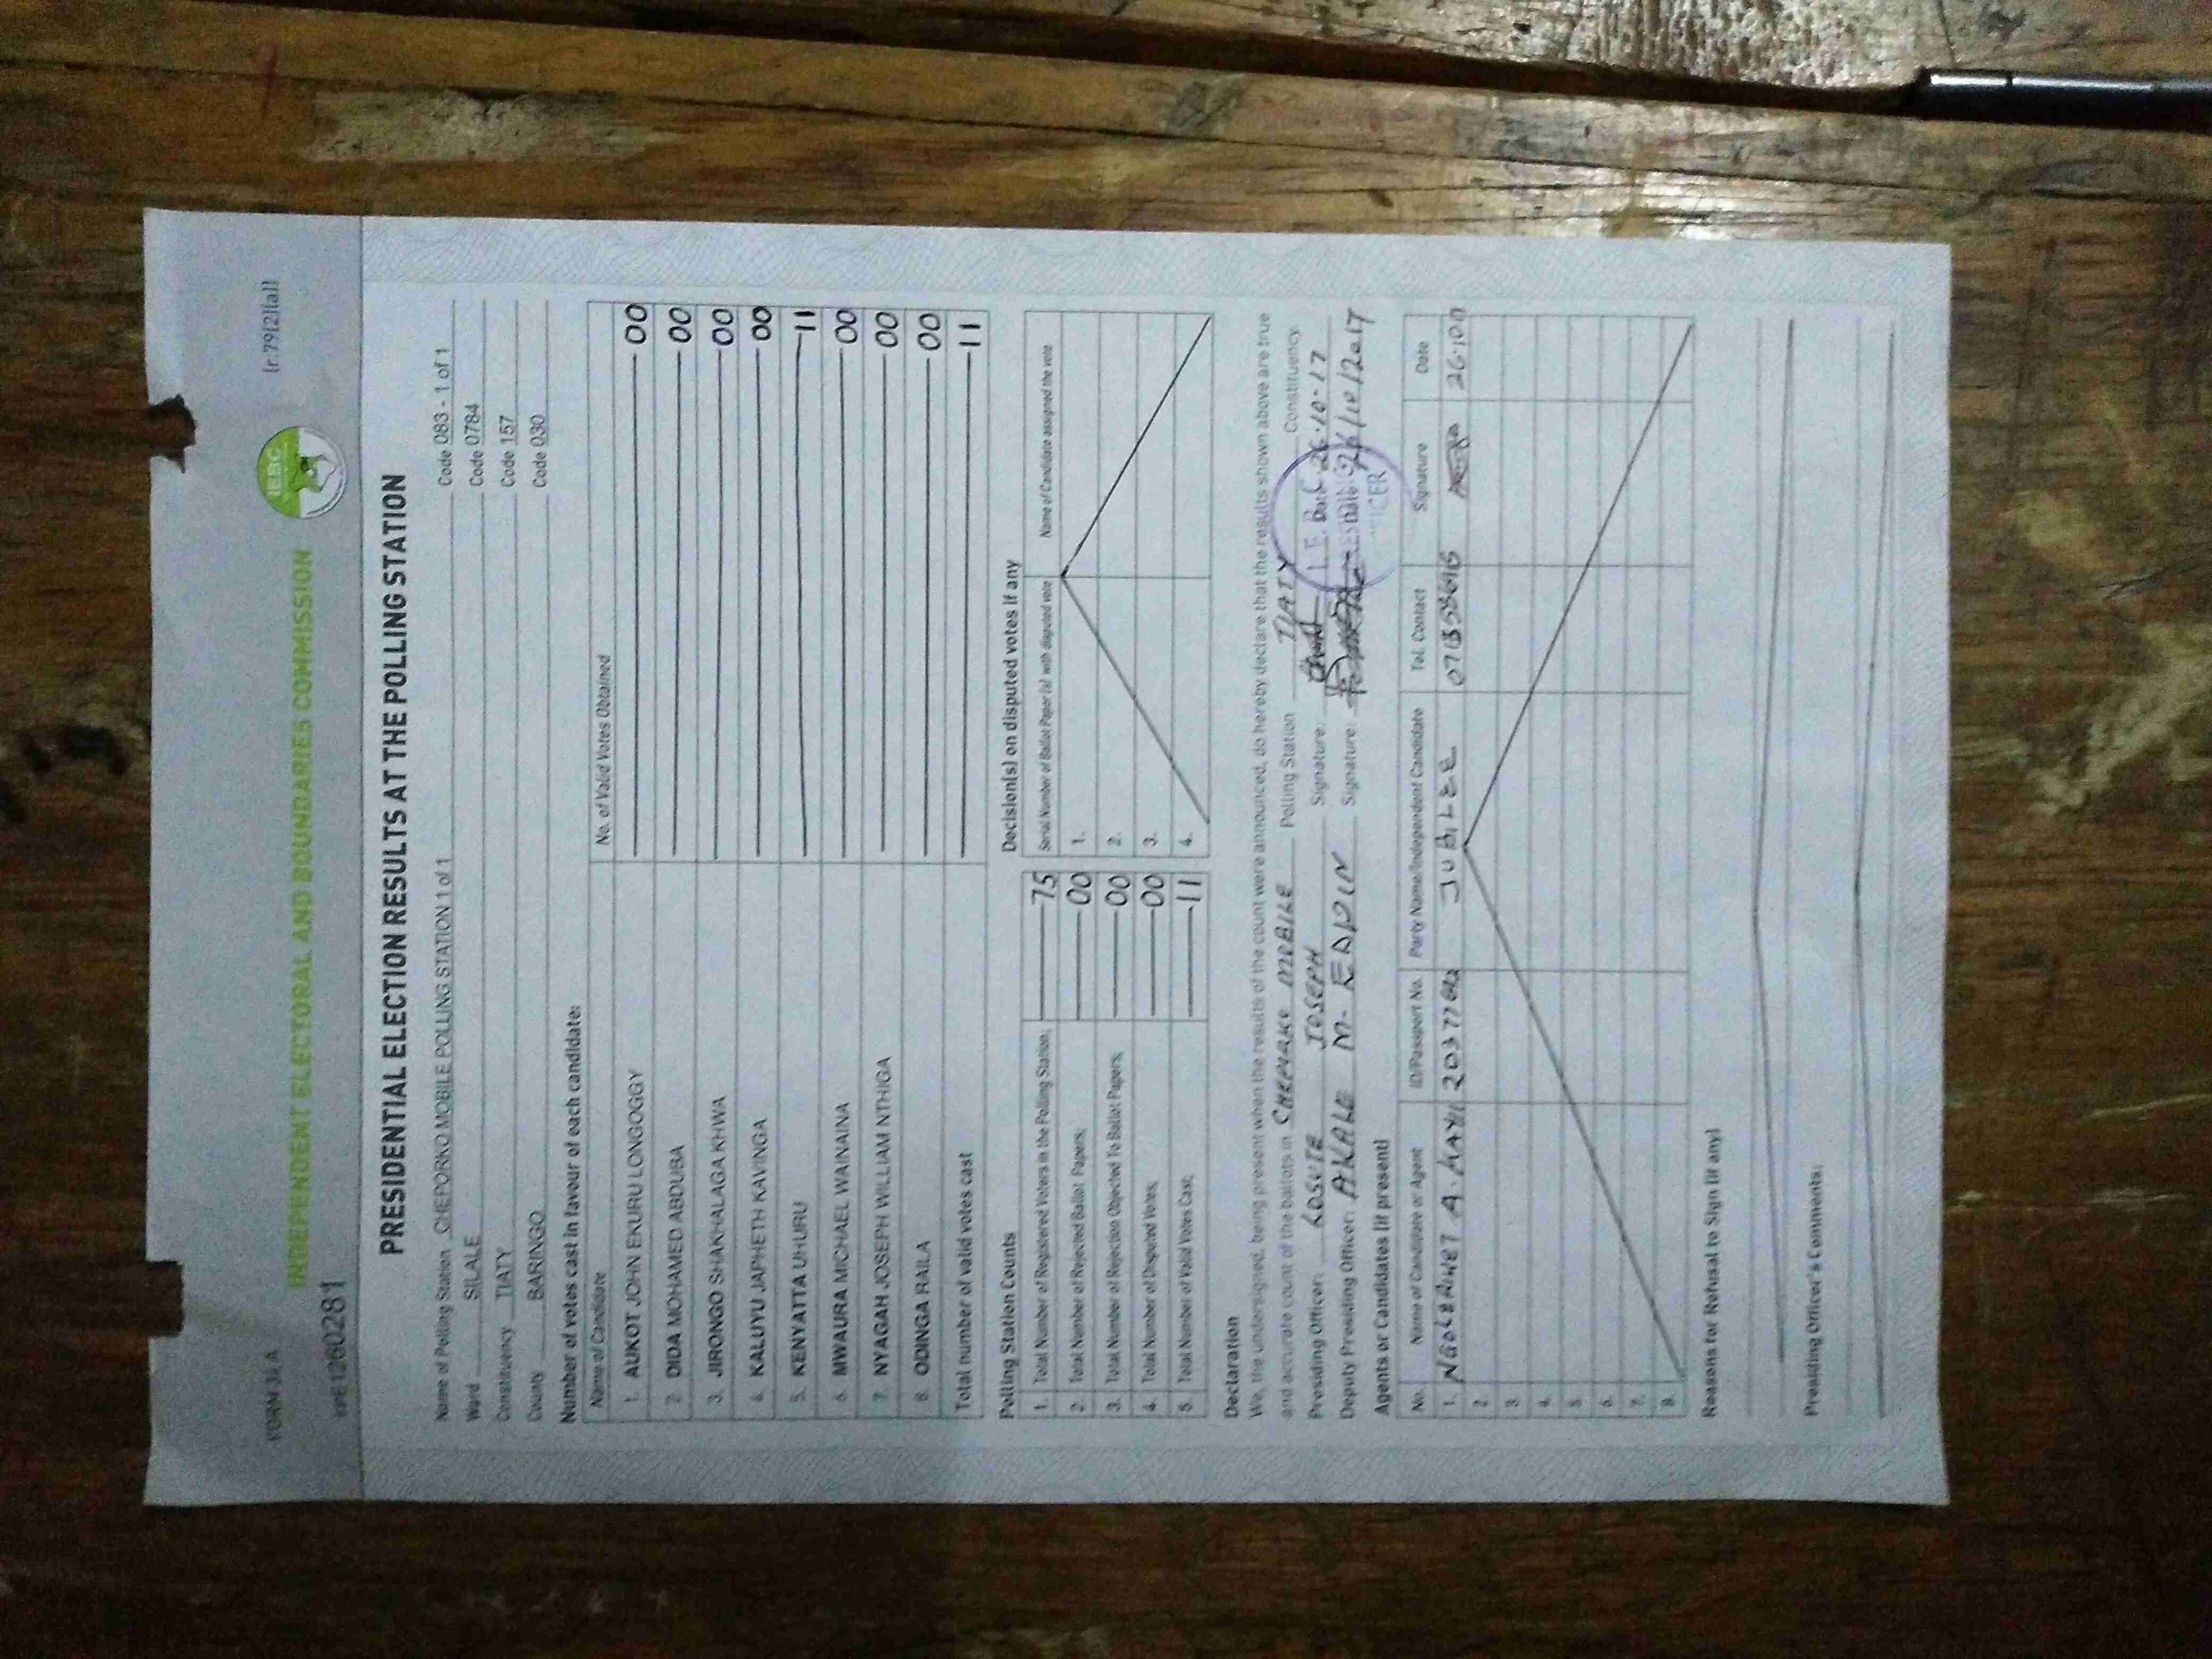 FORM 34 A
(r.79(2)(a))
INDEPENDENT ELECTORAL AND BOUNDARIES COMMISSION
IEBC
PRESIDENTIAL ELECTION RESULTS AT THE POLLING STATION
Name of Polling Station CHEPORKO MOBILE POLLING STATION 1 of 1 Code 083 - 1 of 1
Ward SILALE Code 0784
Constituency TIATY Code 157
County BARINGO Code 030
Number of votes cast in favour of each candidate:
Name of Candidate No. of Valid Votes Obtained
1. AUKOT JOHN EKURU LONGOGGY 00
2. DIDA MOHAMED ABDUBA 00
3. JIRONGO SHAKHALAGA KHWA 00
4. KALUYU JAPHETH KAVINGA 00
5. KENYATTA UHURU 11
6. MWAURA MICHAEL WAINAINA 00
7. NYAGAH JOSEPH WILLIAM NTHIGA 00
8. ODINGA RAILA 00
Total number of valid votes cast 11
Polling Station Counts
1. Total Number of Registered Voters in the Polling Station; 75
2. Total Number of Rejected Ballot Papers; 00
3. Total Number of Rejection Objected To Ballot Papers; 00
4. Total Number of Disputed Votes; 00
5. Total Number of Valid Votes Cast; 11
Decision(s) on disputed votes if any
Serial Number of Ballot Paper (s) with disputed vote Name of Candidate assigned the vote
1.
2.
3.
4.
Declaration
We, the undersigned, being present when the results of the count were announced, do hereby declare that the results shown above are true
and accurate count of the ballots in MOBILE Polling Station TIATY Constituency.
Presiding Officer: LOSUTE JOSEPH Signature: Date: 26.10.17
Deputy Presiding Officer: AKALE M. EDWIN Signature: Date: 26/10/2017
Agents or Candidates (if present)
No. Name of Candidate or Agent ID/Passport No. Party Name/Independent Candidate Tel. Contact Signature Date
1. JUBILEE
2.
3.
4.
5.
6.
7.
8.
Reasons for Refusal to Sign (if any)
Presiding Officer's Comments: